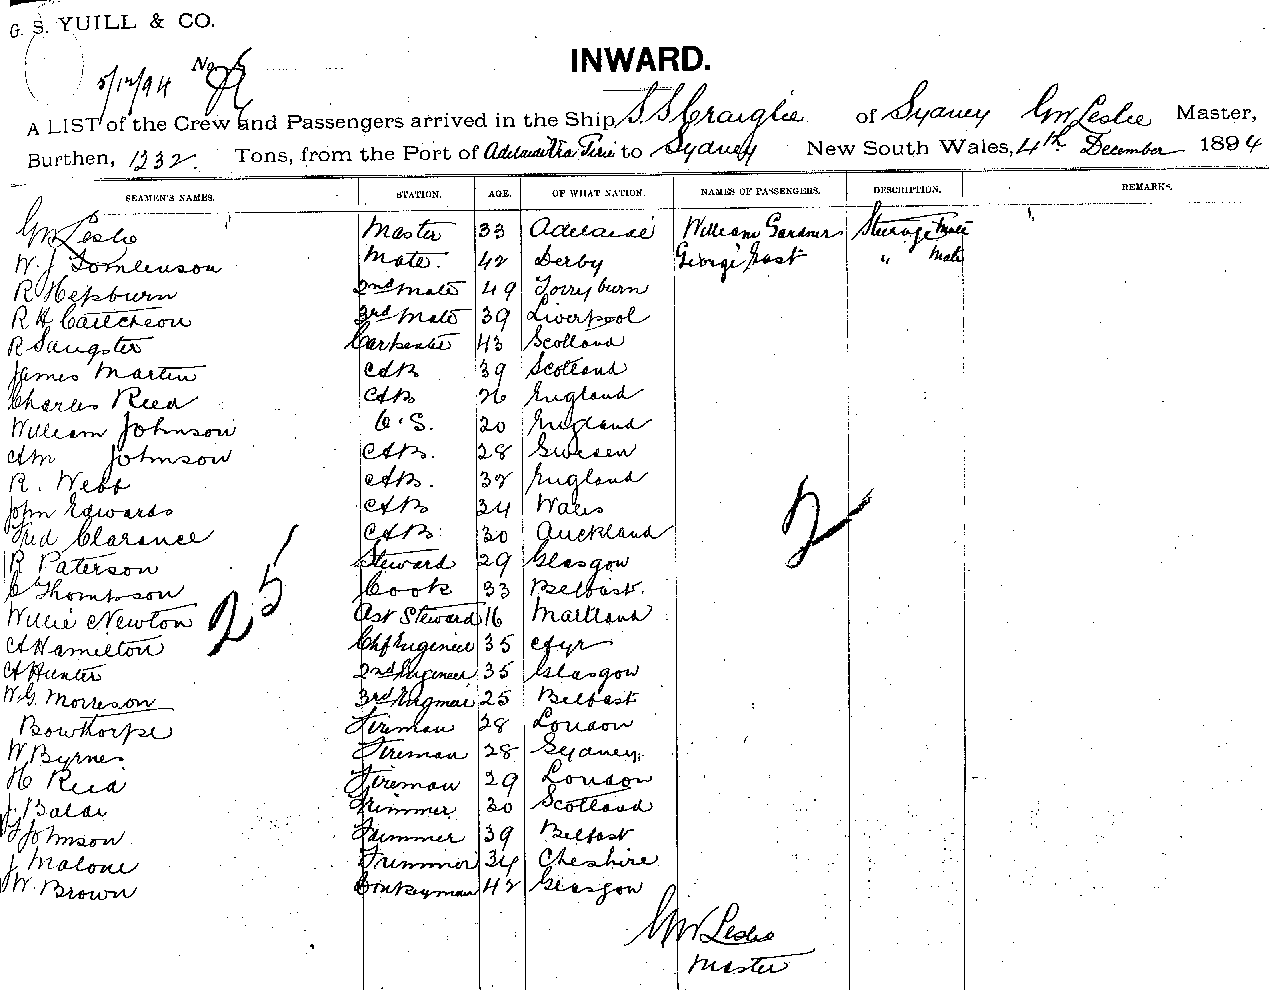 G. S. YUILL & CO.
5/12/94 No
INWARD.
A LIST of the Crew and Passengers arrived in the Ship SS Craiglie of Sydney GW Leslie Master,
Burthen, 1232 Tons, from the Port of Adelaide via Pirie to Sydney New South Wales, 4th December 1894
SEAMEN'S NAMES. STATION. AGE. OF WHAT NATION. NAMES OF PASSENGERS. DESCRIPTION. REMARKS.
GW Leslie Master 33 Adelaide William Gardner Steerage Male
W. J. Tomlenson Mate. 42 Derby George East " Male
R Hepburn 2nd Mate 49 Torryburn
R H Cautcheon 3rd Mate 39 Liverpool
R Sangster Carpenter 43 Scotland
James Martin AB 39 Scotland
Charles Reed AB 26 England
William Johnson O.S. 20 England
Am Johnson AB. 28 Sweden
R. Webb AB. 32 England
John Edwards AB 24 Wales
Fred Clarance AB 30 Auckland
R Paterson Steward 29 Glasgow
C Thompson Cook 33 Belfast.
Willie Newton Ast Steward 16 Maitland
A Hamilton Chf Engineer 35 Ayr
A Hunter 2nd Engineer 35 Glasgow
W. G. Morrison 3rd Engineer 25 Belfast
Bowthorpe Fireman 28 London
W Byrnes Fireman 28 Sydney.
H Reid Fireman 29 London
J. Baldi Trimmer 30 Scotland
Johnson Trimmer 39 Belfast
J Malone Trimmer 34 Cheshire
W. Brown Donkeyman 42 Glasgow
25
2
GW Leslie
Master